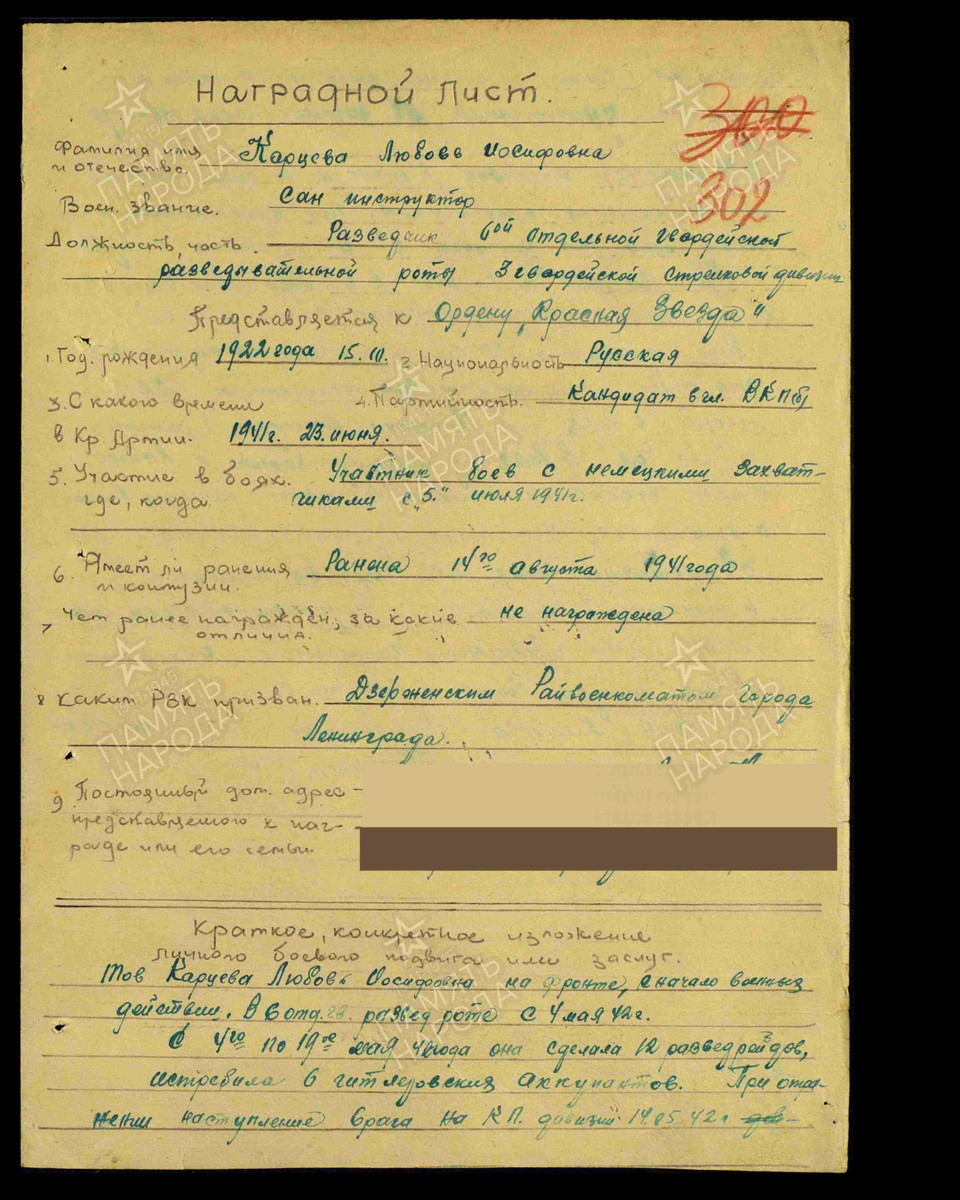 Наградной Лист.
300
302
Фамилия имя
и отечество.
Карцева Любовь Иосифовна
Воен. Звание. Сан инструктор
Должность часть. Разведчик 6ой отдельной гвардейской
разведывательной роты 3 гвардейской стрелковой дивизии
Представляется к Ордену „Красная Звезда"
1. Год. рождения 1922 года 15. III. 2. Национальность Русская
3. С какого времени 4. Партийность. Кандидат в чл. ВКП(б)
в Кр Армии. 1941г. 23. июня.
5. Участие в боях. Участник боев с немецкими захват-
где, когда чиками с „5" июля 1941г.
6. Имеет ли ранения Ранена 14го августа 1941 года
и контузии.
7 Чем ранее награжден, за какие не награждена
отличия.
8 Каким РВК призван. Дзержинским Райвоенкоматом Города
Ленинграда.
9. Постоянный дом. адрес -
представляемого к наг-
раде или его семьи.
Краткое, конкретное изложение
личного боевого подвига или заслуг.
Тов Карцева Любовь Иосифовна на фронте, с начало военных
действии. В 6 отд. гв. развед роте с 4 мая 42 г.
С 4го по 19ое мая 42 года она сделала 12 разведрейдов,
истребила 6 гитлеровских аккупантов. При отра-
жении наступление врага на КП. дивизии 14.05.42 г
ПАМЯТЬ
НАРОДА
ПАМЯТЬ
НАРОДА
ПАМЯТЬ
НАРОДА
ПАМЯТЬ
НАРОДА
ПАМЯТЬ
НАРОДА
ПАМЯТЬ
НАРОДА